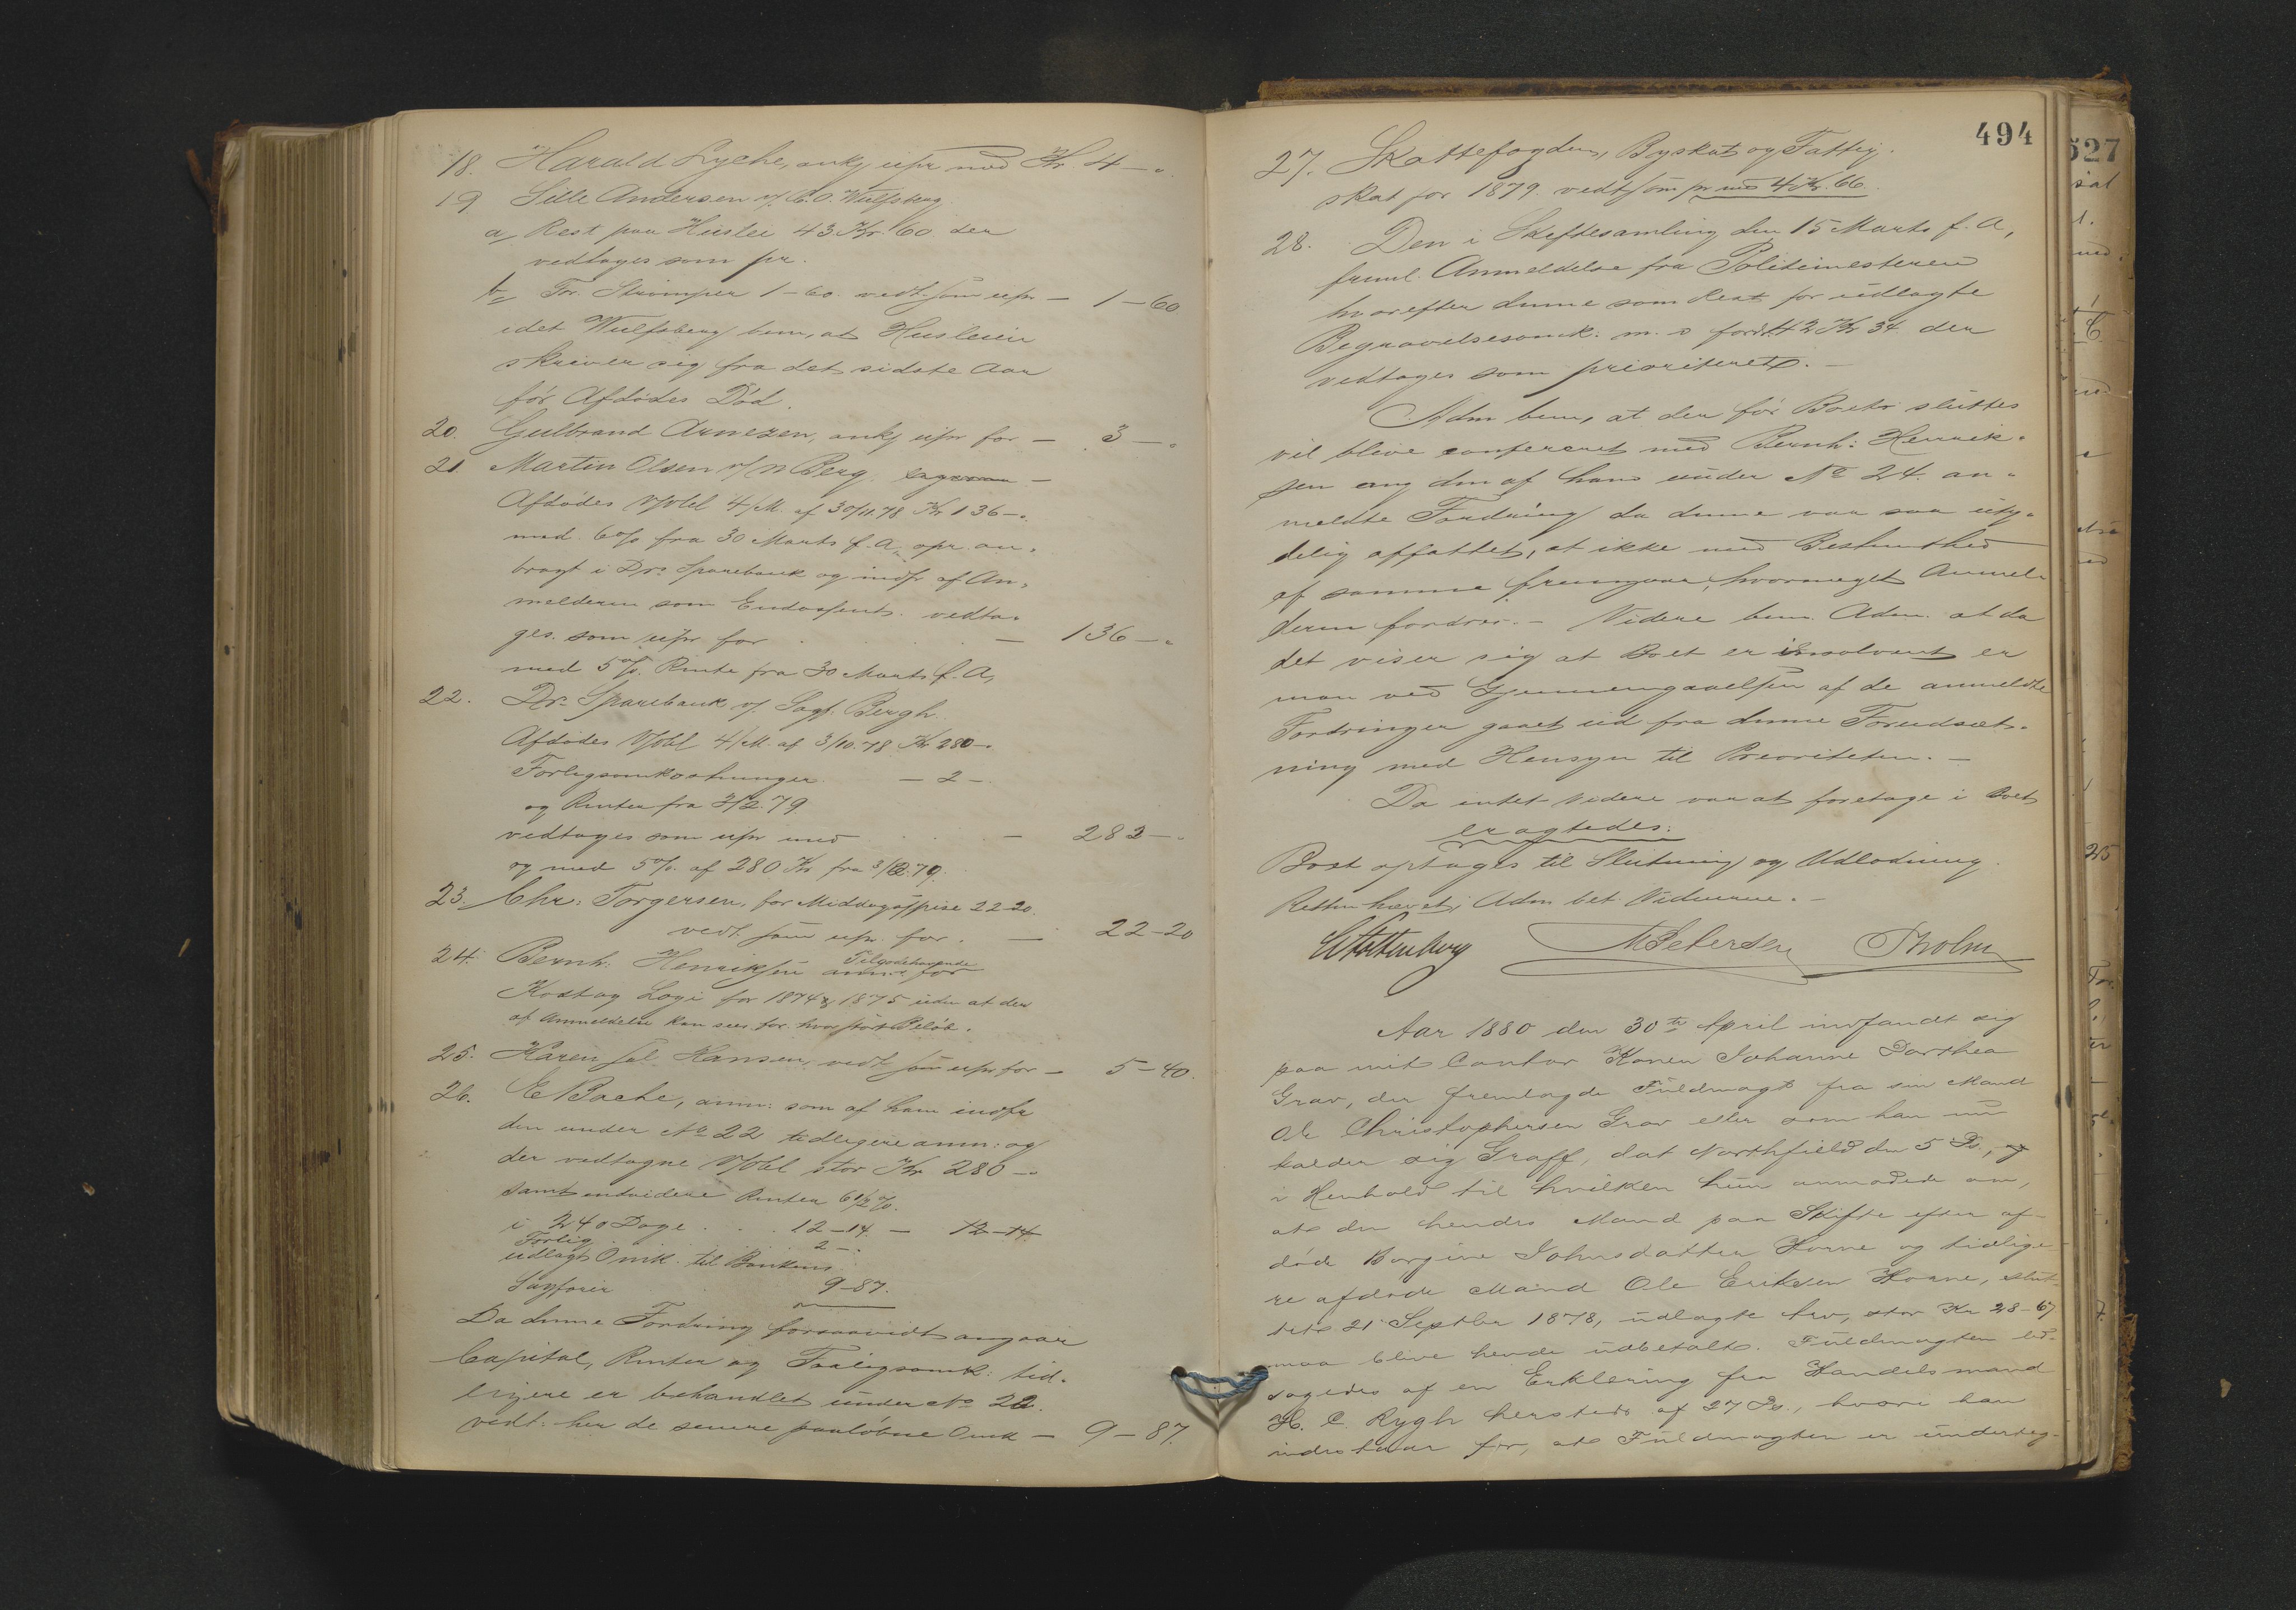 18. Harald Lyche, ank, upr med Kr. 4 — "
19 Sille Andersen v/ C. O. Wulfsberg.
a/ Rest paa Huslei 43 Kr. 60 der
vedtages som pr.
b/ For Strømper 1-60. vedt. som upr — 1 — 60
idet Wulfsberg bem, at Husleien
skriver sig fra det sidste Aar
før Afdødes Død.
20. Gulbrand Arnesen, ank upr for — 3 — "
21. Martin Olsen v/ N Berg.
Afdødes V/obl 4/M. af 30/11.78 Kr 136 — "
med 6% fra 30 Marts f. A. opr. an-
bragt i Drs Sparebank og indfr af An-
melderen som Endossent. vedta-
ges som upr for — 136 — "
med 5%. Rente fra 30 Marts f. A.
22. Drs Sparebank v/ Sagf. Bergh.
Afdødes V/obl 4/M. af 3/10.78 Kr 280 — "
Forligsomkostninger — 2 —
og Renter fra 3/2.79
vedtages som upr med — 282 — "
og med 5%. af 280 Kr fra 3/2.79.
23. Chr: Torgersen, for Middagsspise 22-20.
vedt som upr. for. — 22-20
24. Bernh. Henriksen anm. Tilgodehavende for
Kost og Logi for 1874 & 1875 uden at der
af Anmeldelse kan sees for hvor stort Beløb.
25. Karen Hansen, vedt som upr for — 5 — 40.
26. E Bache, anm: som af ham indfr
den under No 22 tidligere anm: og
der vedtagne V/obl stor Kr 280 — "
samt endvidere Renter 6 1/2 %.
i 240 Dage . . . 12-14. — 12-14
Forlig 2 — "
udlagt Omk. til Bankens
Sagfører 9-87.
Da denne Fordring forsaavidt angaar
Capital, Renter og Forligsomk: tid-
ligere er behandlet under No 22.
vedt: her de senere paaløbne Omk — 9 — 87.
494
27. Skattefogden, Byskat og Fattig-
skat for 1879. vedt som pr med 4 Kr. 66
28. Den i Skiftesamling den 15 Marts f. A,
freml. Anmeldelse fra Politimesteren
hvorefter denne som Rest for udlagte
Begravelsesomk. m. v fordr. 42 Kr 34. der
vedtages som prioriteret. —
Adm bem, at der før Boets sluttes
vil blive confereret med Bernh: Henrik-
sen ang den af ham under No 24. an-
meldte Fordring da denne var saa uty-
delig affattet, at ikke med Bestemthed
af samme fremgaar, hvormeget Anmel-
deren fordrer. — Videre bem. Adm. at da
det viser sig at Boet er insolvent er
man ved Gjennemgaaelsen af de anmeldte
Fordringer gaaet ud fra denne Forudsæt-
ning med Hensyn til Prioriteten. —
Da intet videre var at foretage i Boet
eragtedes:
Boet optages til Slutning og Udlodning.
Retten hævet; Adm bet. Vidnerne. —
Stoltenberg M Petersen Tholm
Aar 1880 den 30te April indfandt sig
paa mit Contor Konen Johanne Dorthea
Grav, der fremlagde Fuldmagt fra sin Mand
Ole Christophersen Grav eller som han nu
kalder sig Graff, dat Northfield den 5 Ds., og
i Henhold til hvilken hun anmodede om,
at den hendes Mand paa Skifte efter af-
døde Borgine Johnsdatter Horne og tidlige-
re afdøde Mand Ole Eriksen Horne, slut-
tet 21 Septbr 1878, udlagte Arv, stor Kr 28-67
maa blive hende udbetalt. Fuldmagten led-
sagedes af en Erklæring fra Handelsmand
H. C. Rygh hersteds af 27 Ds., hvori han
indestaar for, at Fuldmagten er underteg-
527